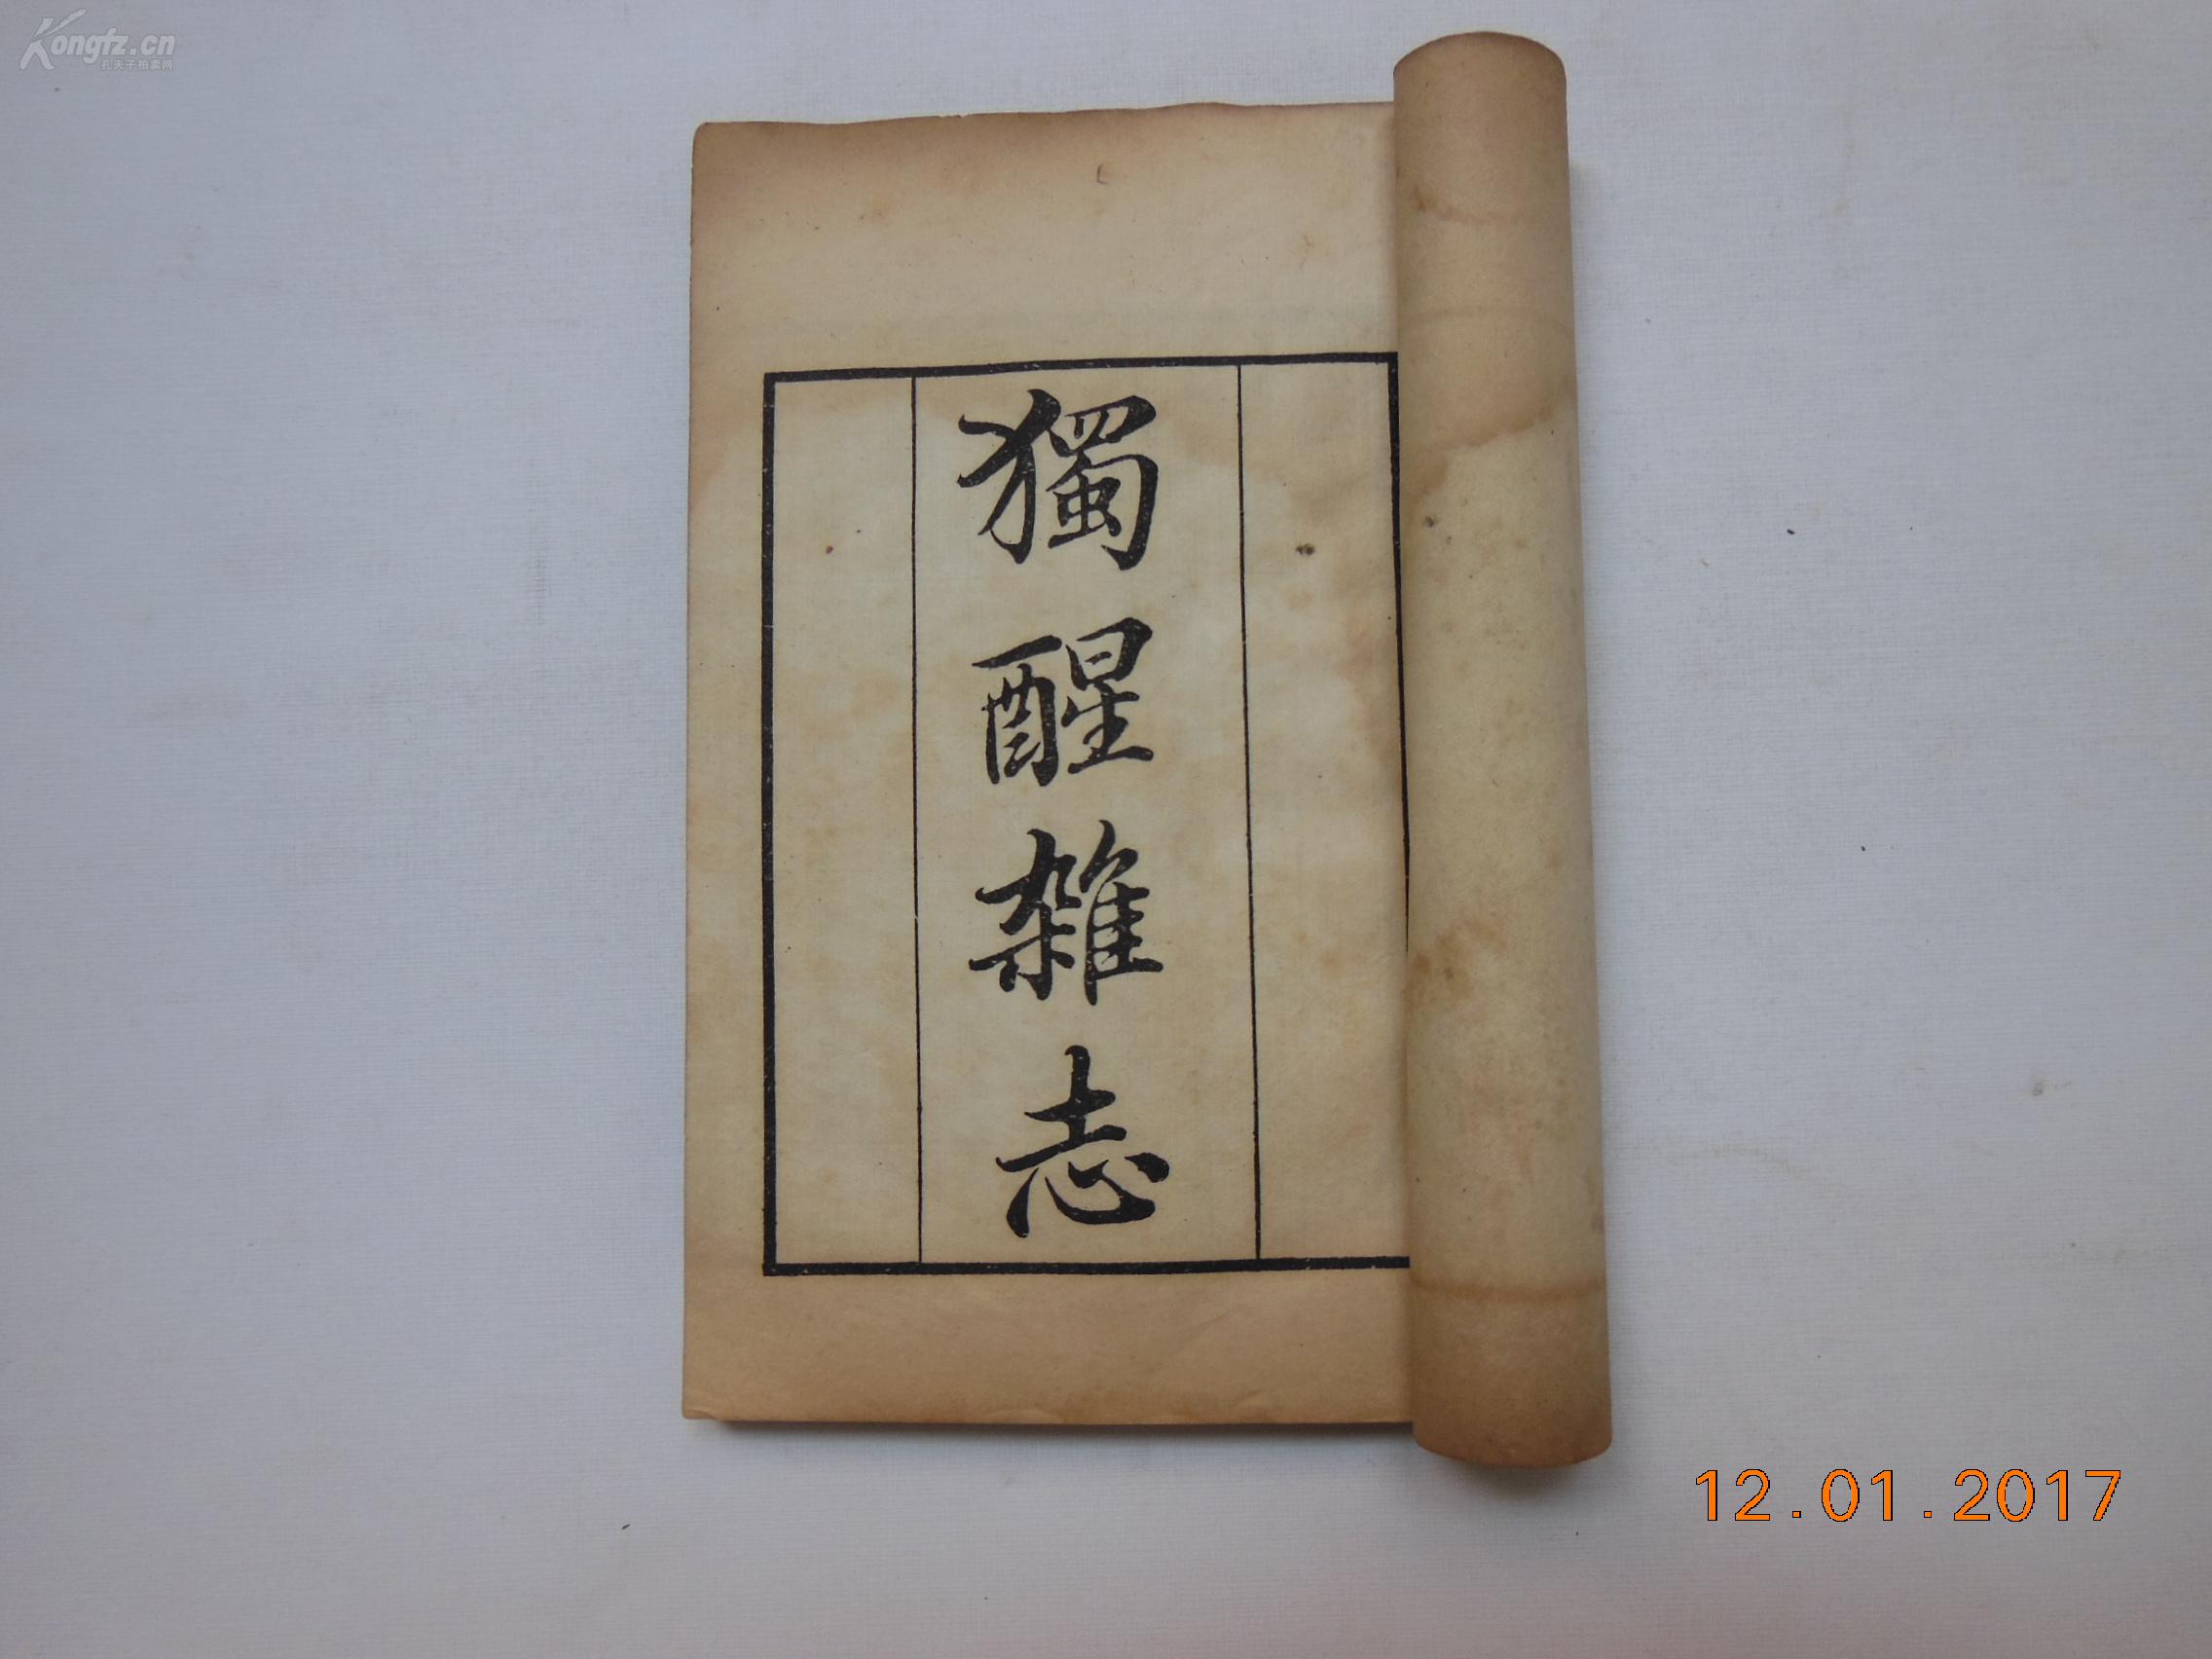 Kongfz.cn
孔夫子拍卖网
獨醒雜志
12.01.2017